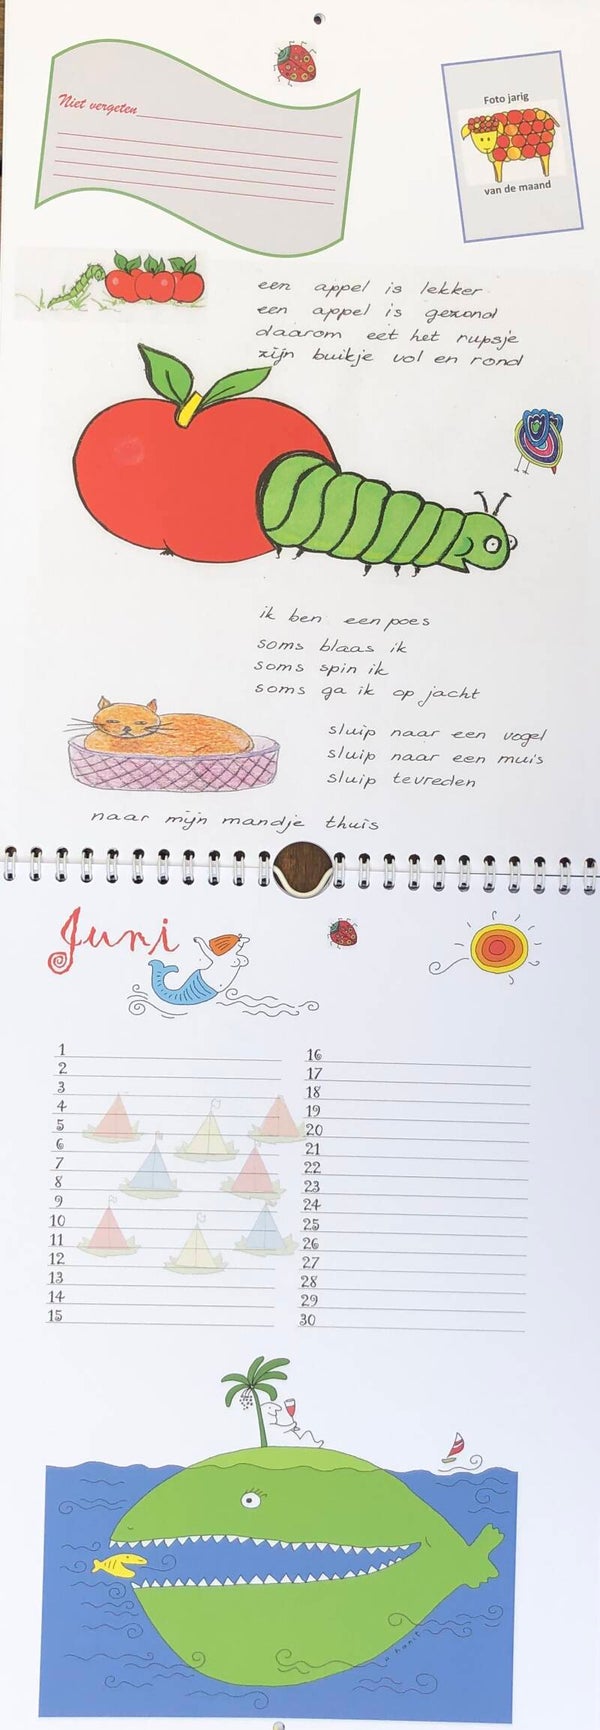 Niet vergeten
Foto jarig
van de maand
een appel is lekker
een appel is gezond
daarom eet het rupsje
zijn buikje vol en rond
ik ben een poes
soms blaas ik
soms spin ik
soms ga ik op jacht
sluip naar een vogel
sluip naar een muis
sluip tevreden
naar mijn mandje thuis
Juni
1
2
3
4
5
6
7
8
9
10
11
12
13
14
15
16
17
18
19
20
21
22
23
24
25
26
27
28
29
30